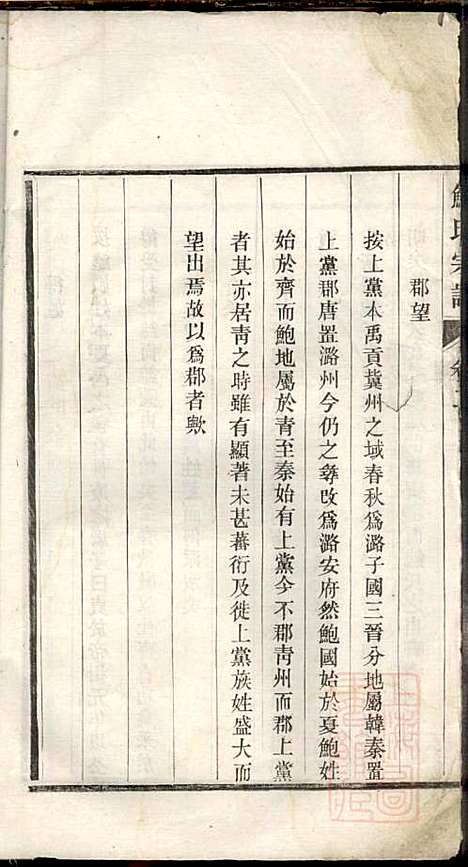 鮑氏宗譜 卷
郡望
按上黨本禹貢冀州之域春秋爲潞子國三晉分地屬韓秦置
上黨郡唐置潞州今仍之尋改爲潞安府然鮑國始於夏鮑姓
始於齊而鮑地屬於青至秦始有上黨今不郡青州而郡上黨
者其亦居青之時雖有顯著未甚蕃衍及徙上黨族姓盛大而
望出焉故以爲郡者歟